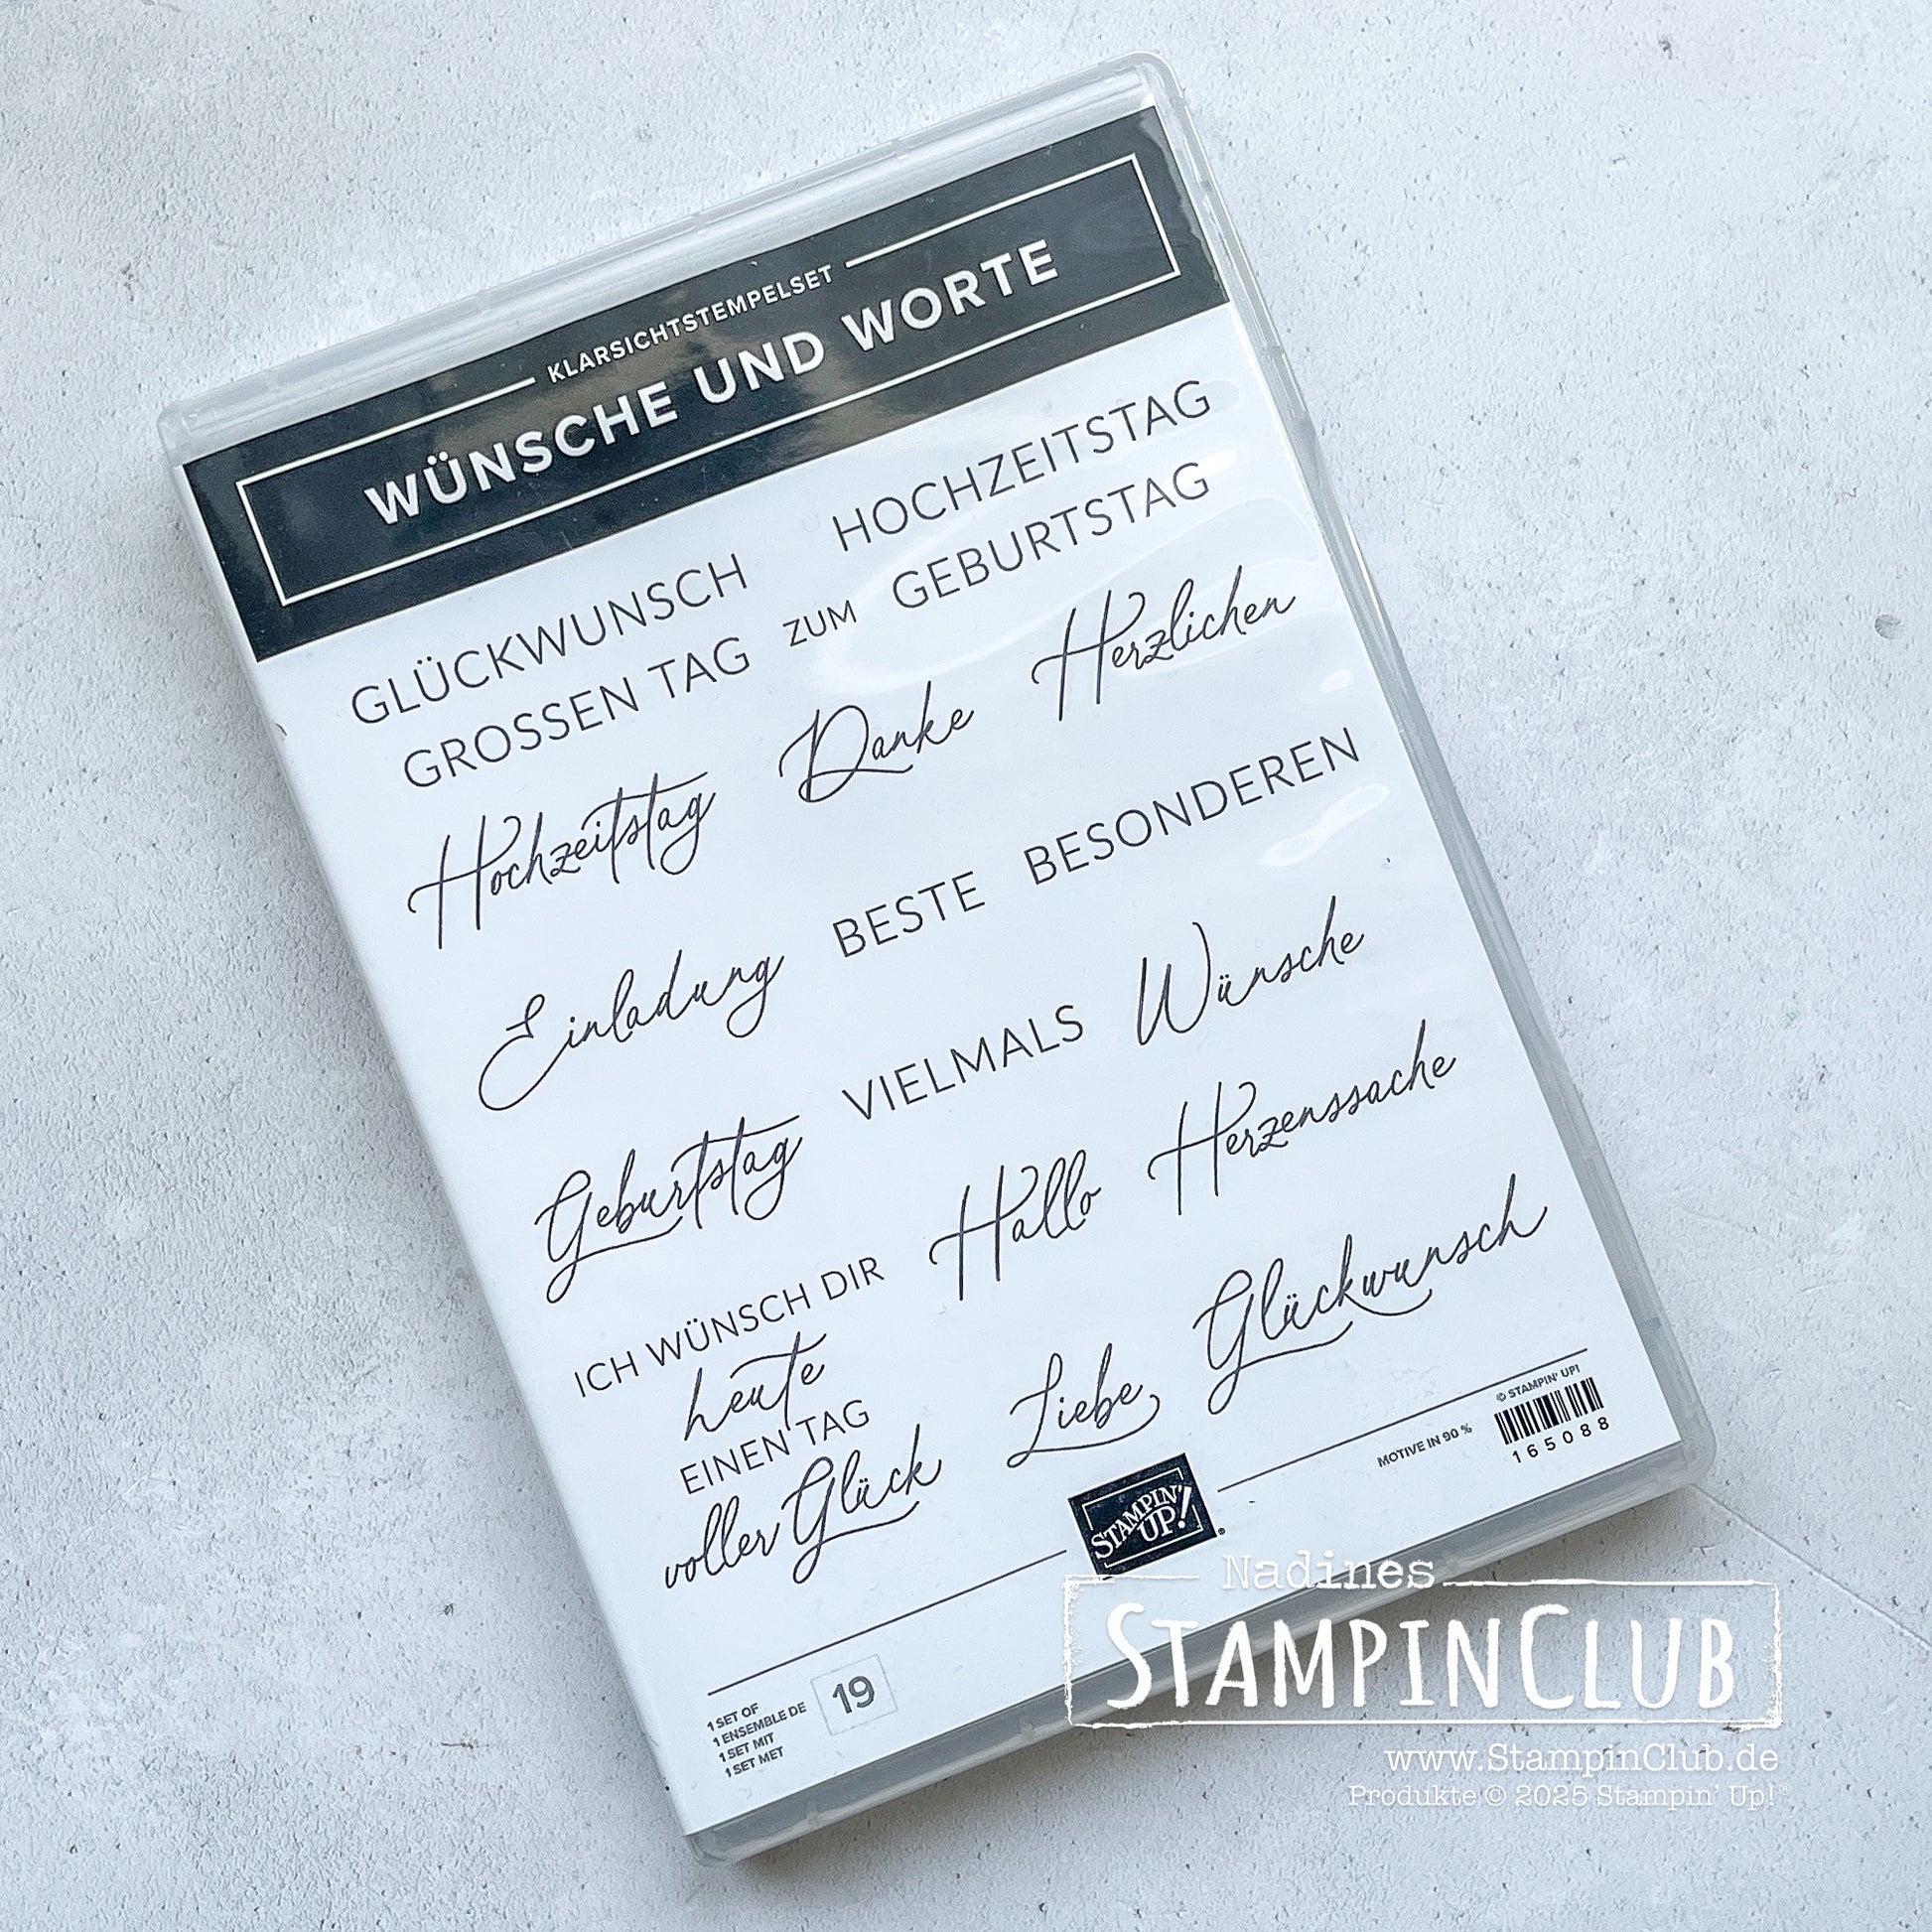 KLARSICHTSTEMPELSET
WÜNSCHE UND WORTE
GLÜCKWUNSCH HOCHZEITSTAG
GROSSEN TAG ZUM GEBURTSTAG
Hochzeitstag Danke Herzlichen
Einladung BESTE BESONDEREN
Geburtstag VIELMALS Wünsche
ICH WÜNSCH DIR Hallo Herzenssache
heute
EINEN TAG
voller Glück Liebe Glückwunsch
© STAMPIN' UP!
MOTIVE IN 90 %
165088
STAMPIN'
UP!®
1 SET OF
1 ENSEMBLE DE
1 SET MIT
1 SET MET
19
Nadines
STAMPINCLUB
www.StampinClub.de
Produkte © 2025 Stampin' Up!®